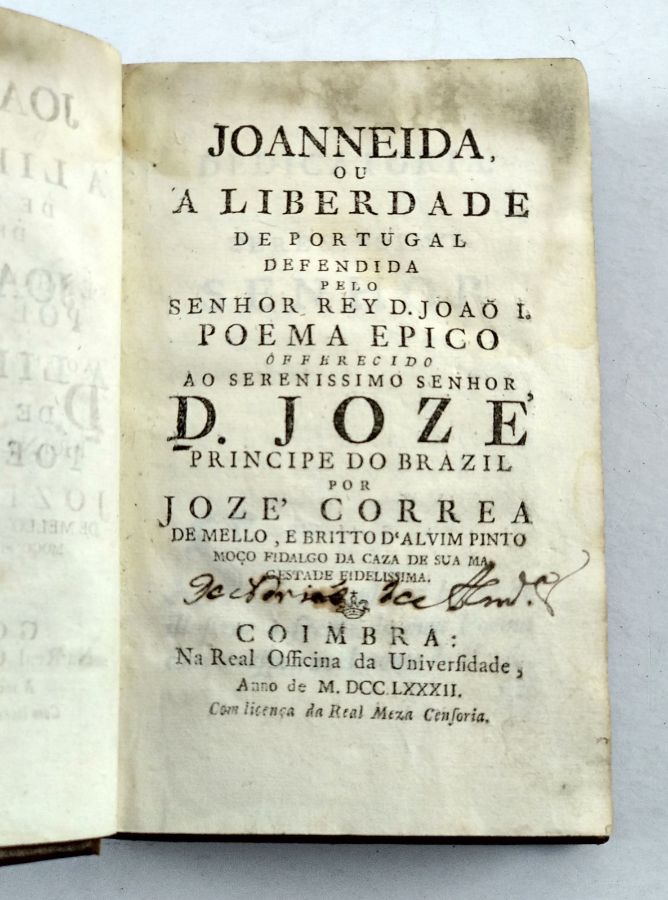 JOANNEIDA,
OU
A LIBERDADE
DE PORTUGAL
DEFENDIDA
PELO
SENHOR REY D. JOAÕ I.
POEMA EPICO
OFFERECIDO
AO SERENISSIMO SENHOR
D. JOZE'
PRINCIPE DO BRAZIL
POR
JOZE' CORREA
DE MELLO, E BRITTO D'ALVIM PINTO
MOÇO FIDALGO DA CAZA DE SUA MA
GESTADE FIDELISSIMA.
COIMBRA:
Na Real Officina da Univerſidade,
Anno de M. DCC. LXXXII.
Com licença da Real Meza Cenſoria.